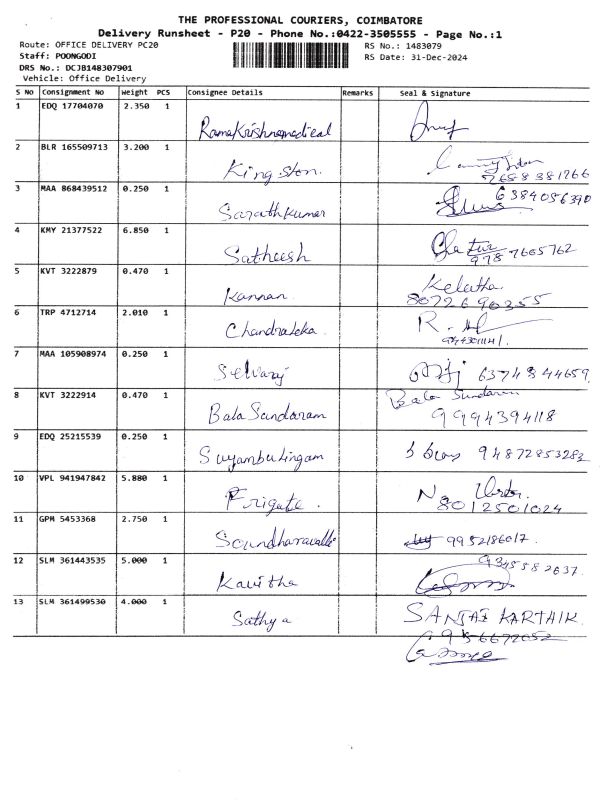 THE PROFESSIONAL COURIERS, COIMBATORE
Delivery Runsheet - P20 - Phone No.:0422-3505555 - Page No.:1
Route: OFFICE DELIVERY PC20 RS No.: 1483079
Staff: POONGODI RS Date: 31-Dec-2024
DRS No.: DCJB148307901
Vehicle: Office Delivery
S No Consignment No Weight PCS Consignee Details Remarks Seal & Signature
1 EDQ 17704070 2.350 1
Ramakrishnamedical
2 BLR 165509713 3.200 1
Kingston. 7658381766
3 MAA 868439512 0.250 1
Sarathkumar 6384056390
4 KMY 21377522 6.850 1
Satheesh 978 7605762
5 KVT 3222879 0.470 1
Kannan. 8072690355
6 TRP 4712714 2.010 1
Chandraleka.
7 MAA 105908974 0.250 1
Selvaraj 6374844659.
8 KVT 3222914 0.470 1 Bala Sundaram
Bala Sundaram 9994394118
9 EDQ 25215539 0.250 1
Suyambulingam 94872853282
10 VPL 941947842 5.880 1
Frigate. 8012501024
11 GPM 5453368 2.750 1
Soundharavalli 9952186017.
12 SLM 361443535 5.000 1 9345582637.
Kavitha
13 SLM 361499530 4.000 1
Sathya SANJAI KARTHIK.